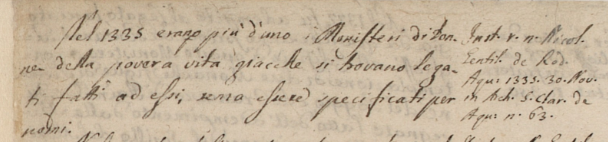 Nel 1335 erano più d'uno i Monisteri di Don-
ne della povera vita giacche si trovano lega-
ti fatti ad essi, senza essere specificati per
nomi.
Inst. r. n. Nicol.
Gentil. de Rod.
Aqu. 1335. 30. Nov.
in Arch. S. Clar. de
Aqu. n. 63.